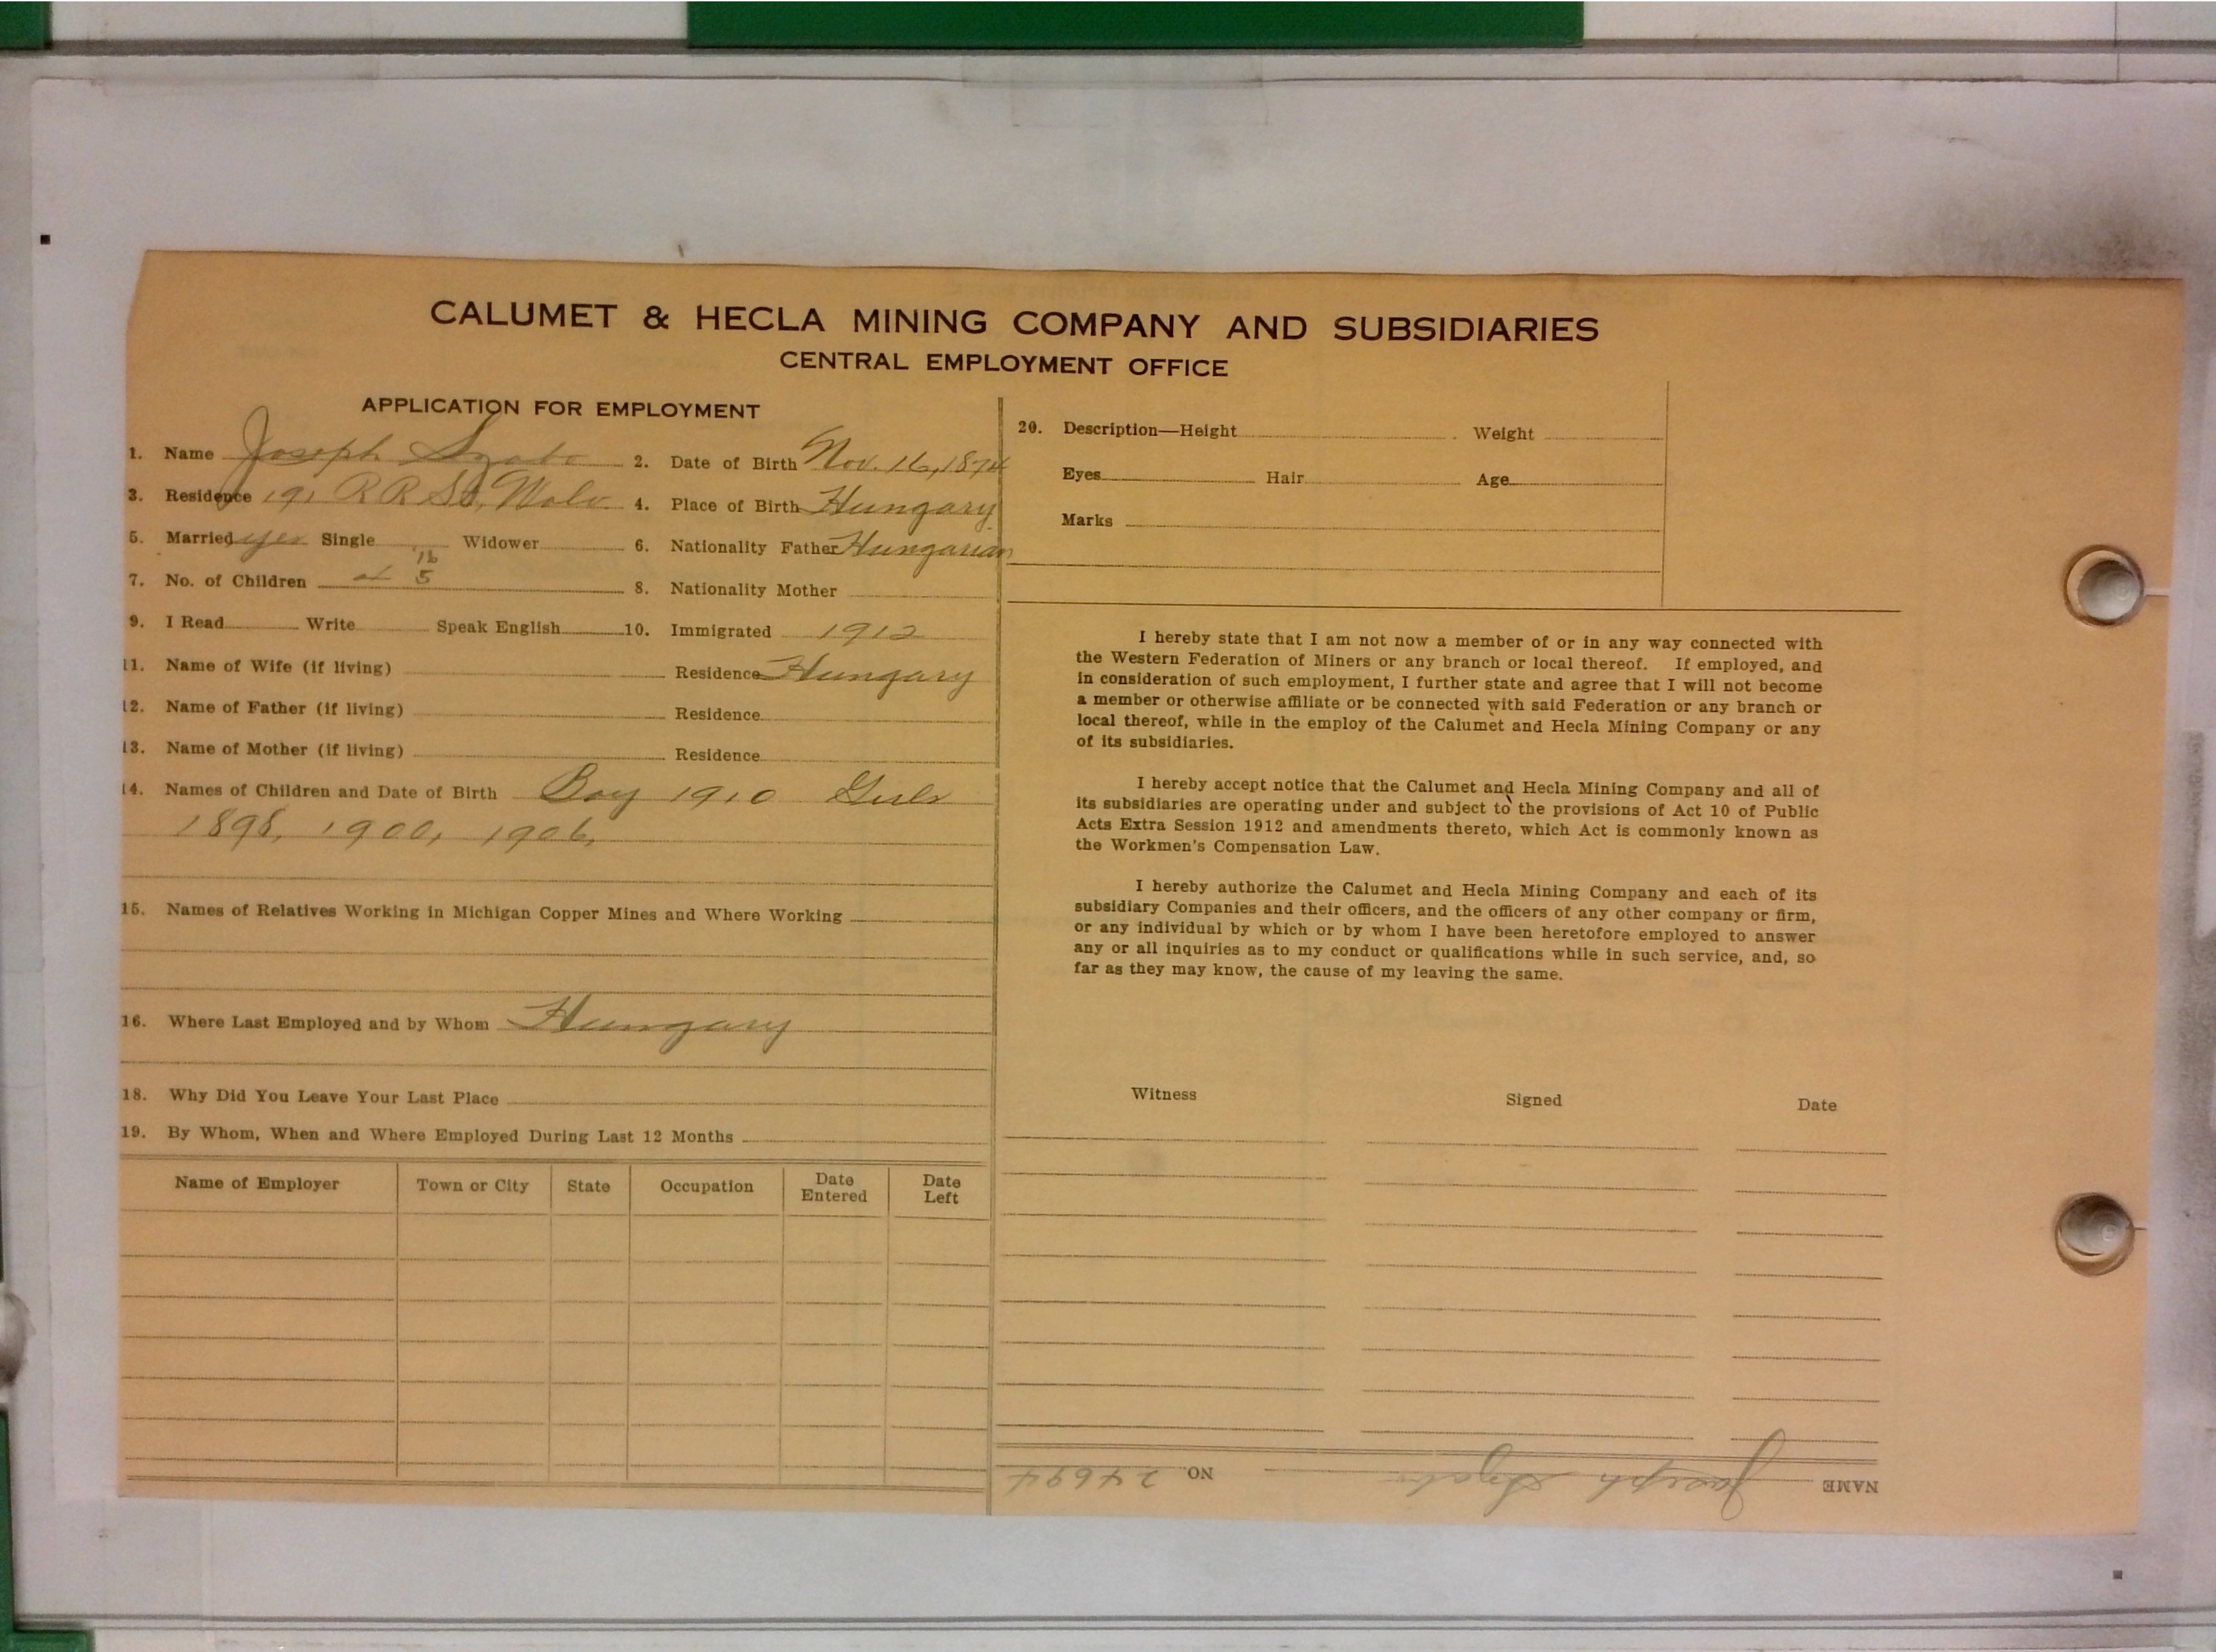 CALUMET & HECLA MINING COMPANY AND SUBSIDIARIES
CENTRAL EMPLOYMENT OFFICE
APPLICATION FOR EMPLOYMENT
1. Name Joseph Szabo 2. Date of Birth Nov. 16, 1874
3. Residence 191 R R St, Wolv. 4. Place of Birth Hungary
5. Married yes Single Widower 6. Nationality Father Hungarian
16
7. No. of Children 5 8. Nationality Mother
9. I Read Write Speak English 10. Immigrated 1912
11. Name of Wife (if living) Residence Hungary
12. Name of Father (if living) Residence
13. Name of Mother (if living) Residence
14. Names of Children and Date of Birth Boy 1910 Girls
1898, 1900, 1906,
15. Names of Relatives Working in Michigan Copper Mines and Where Working
16. Where Last Employed and by Whom Hungary
18. Why Did You Leave Your Last Place
19. By Whom, When and Where Employed During Last 12 Months
Name of Employer Town or City State Occupation Date Entered Date Left
20. Description—Height Weight
Eyes Hair Age
Marks
I hereby state that I am not now a member of or in any way connected with
the Western Federation of Miners or any branch or local thereof. If employed, and
in consideration of such employment, I further state and agree that I will not become
a member or otherwise affiliate or be connected with said Federation or any branch or
local thereof, while in the employ of the Calumet and Hecla Mining Company or any
of its subsidiaries.
I hereby accept notice that the Calumet and Hecla Mining Company and all of
its subsidiaries are operating under and subject to the provisions of Act 10 of Public
Acts Extra Session 1912 and amendments thereto, which Act is commonly known as
the Workmen's Compensation Law.
I hereby authorize the Calumet and Hecla Mining Company and each of its
subsidiary Companies and their officers, and the officers of any other company or firm,
or any individual by which or by whom I have been heretofore employed to answer
any or all inquiries as to my conduct or qualifications while in such service, and, so
far as they may know, the cause of my leaving the same.
Witness Signed Date
NAME Joseph Szabo NO. 24694